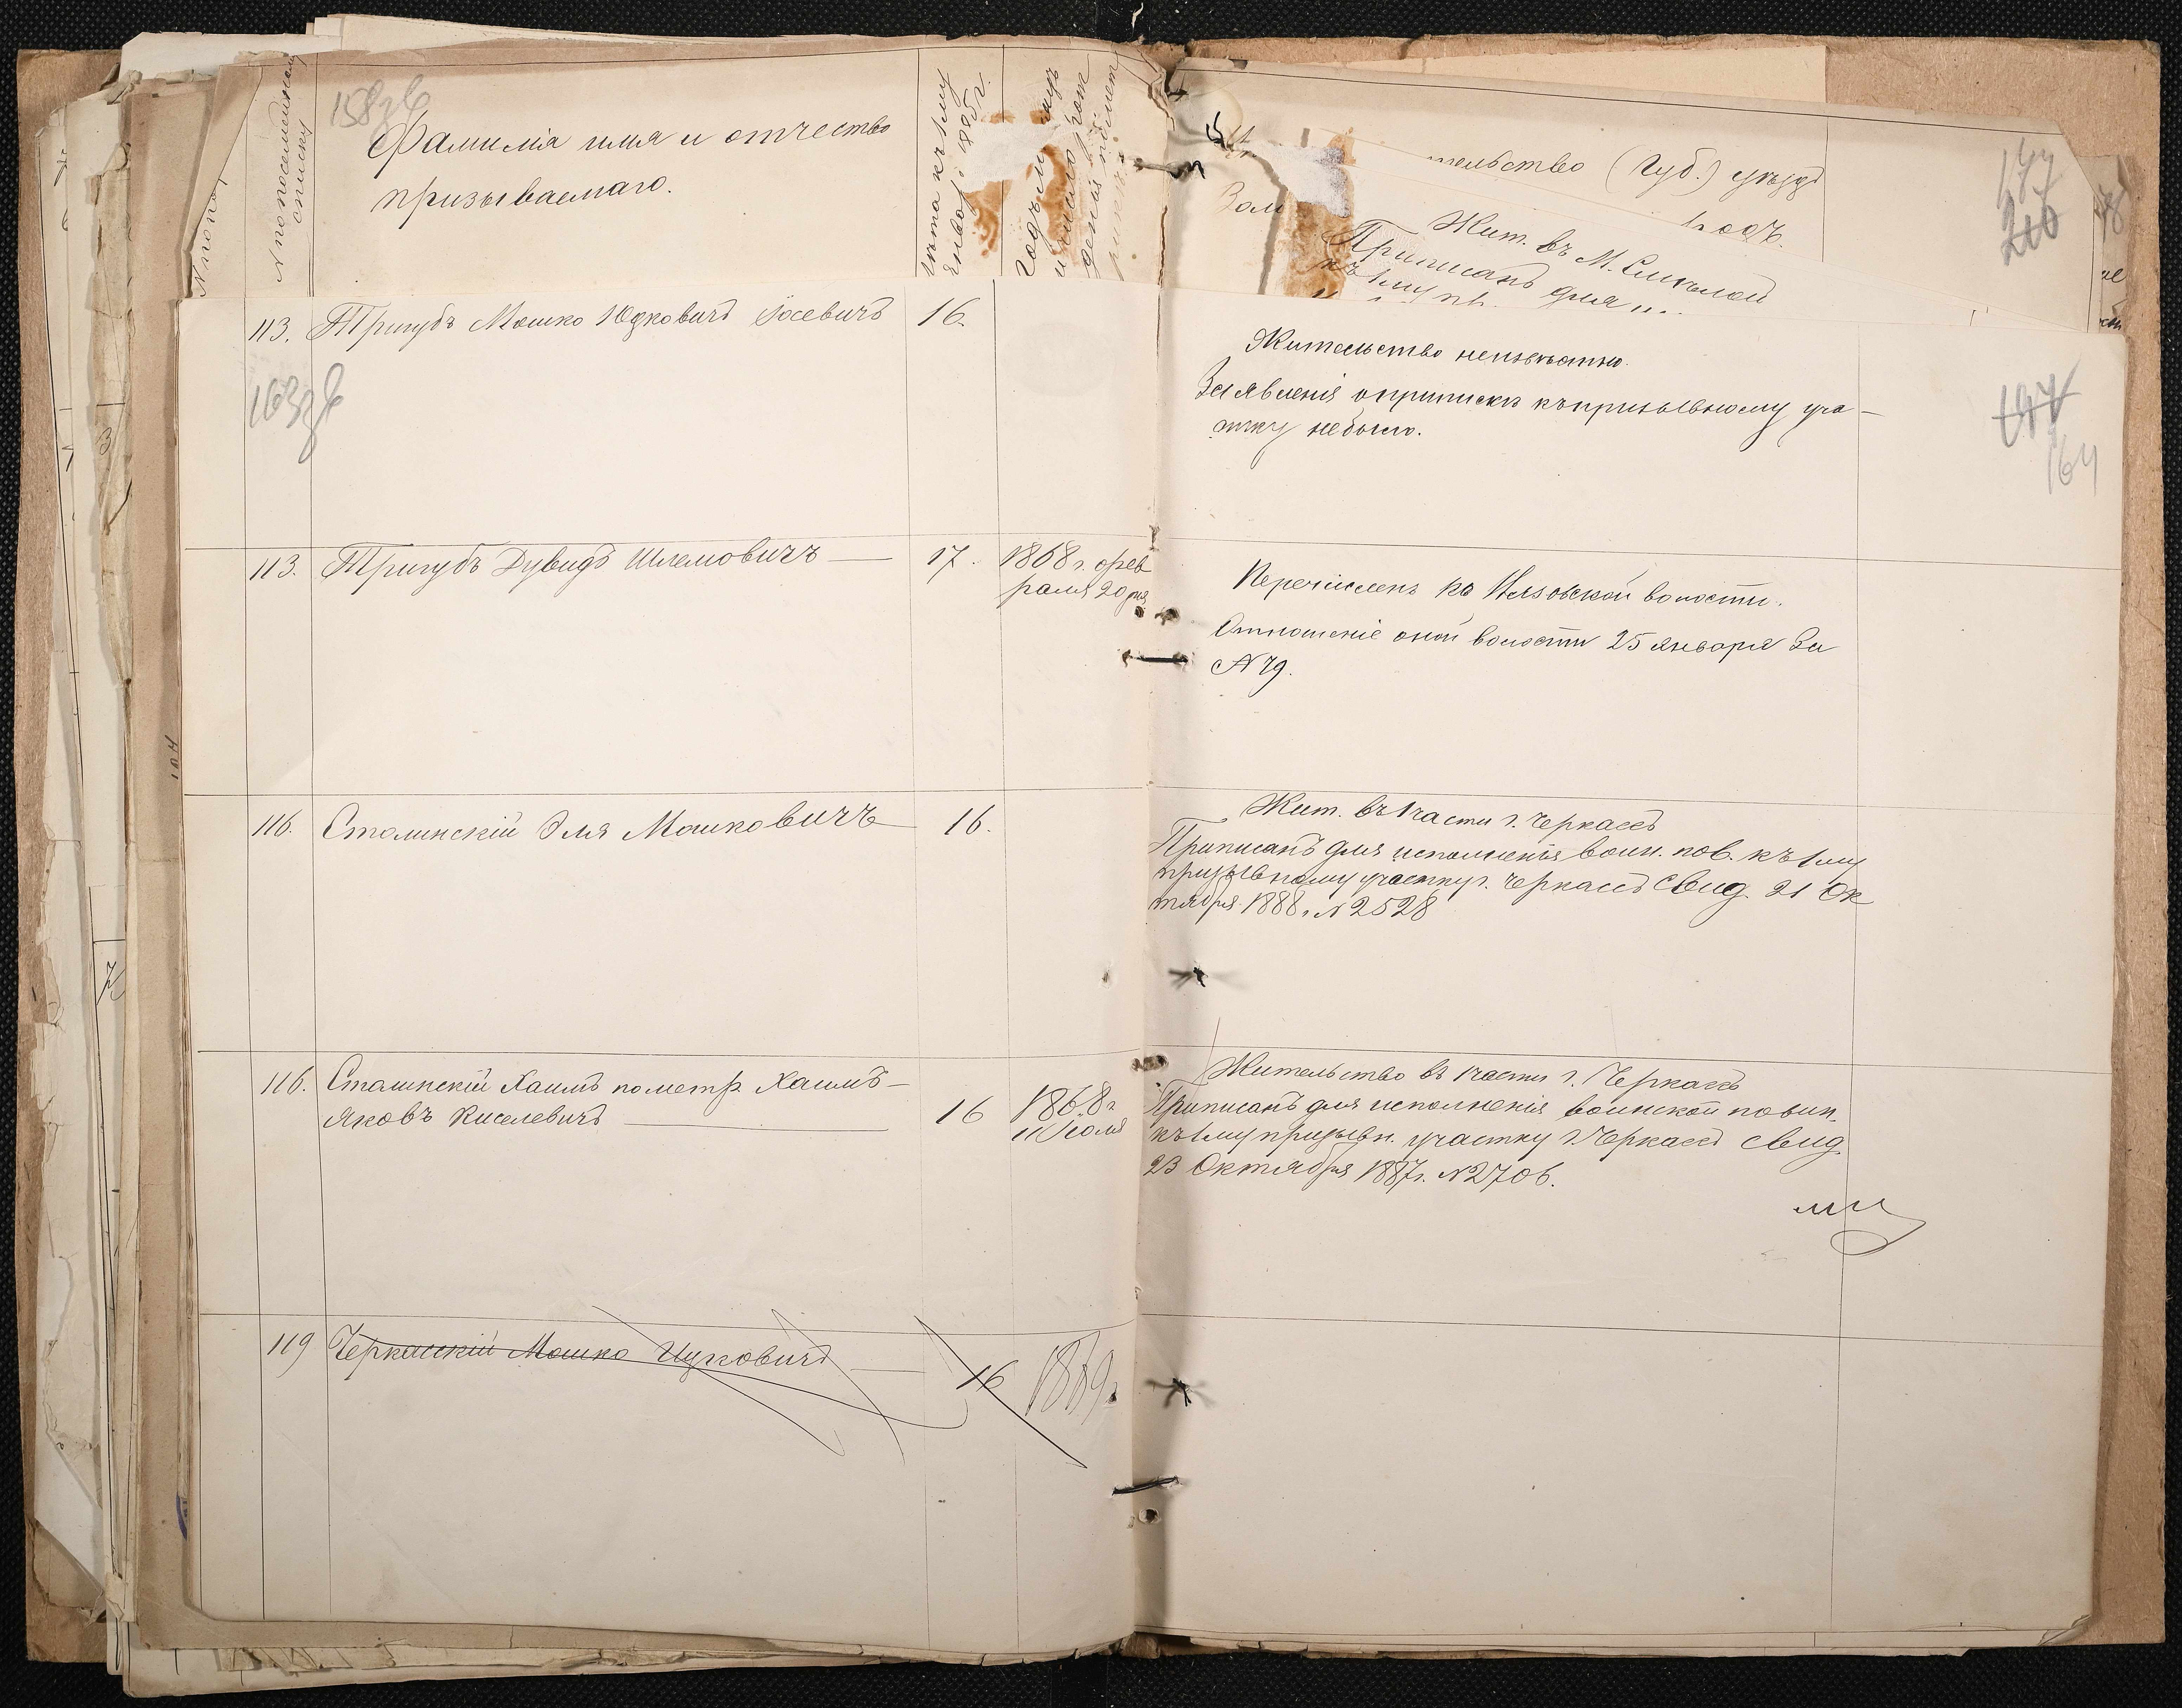 158зв
N по посемейному
списку
Фамилія имя и отчество
призываемаго.
лѣта къ 1му
Январ. 1885 г.
Годъ м
тельство (Губ.) уѣздъ
Жит. въ М. Смѣлой
Приписанъ для
177
216
113. Тригубъ Мошко Юдковичъ Іосевичъ 16.
163зв
Жительство неизвѣстно.
Заявленія о припискѣ къ призывному уча-
стку небыло.
177
164
113. Тригубъ Дувидъ Шлемовичъ — 17. 1868 г. фев
раля 20 дня
Перечисленъ къ Мельзовской волости.
Отношеніе оной волости 25 января за
N 79.
116. Сталинскій Эля Мошковичъ 16.
Жит. въ 1 части г. Черкассъ
Приписанъ для исполненія воин. пов. къ 1му
призывному участку г. Черкассъ свид. 21 Ок
тября 1888 г. N 2528
116. Сталинскій Хаимъ по метр. Хаимъ-
Яковъ Киселевичъ — 16 1868 г.
11 Іюля
Жительство въ 1 части г. Черкассъ
Приписанъ для исполненія воинской повин.
къ 1му призывн. участку г. Черкассъ свид.
23 Октября 1887 г. N 2706.
119 Черкасскій Мошко Ицковичъ — 16 1869 г.